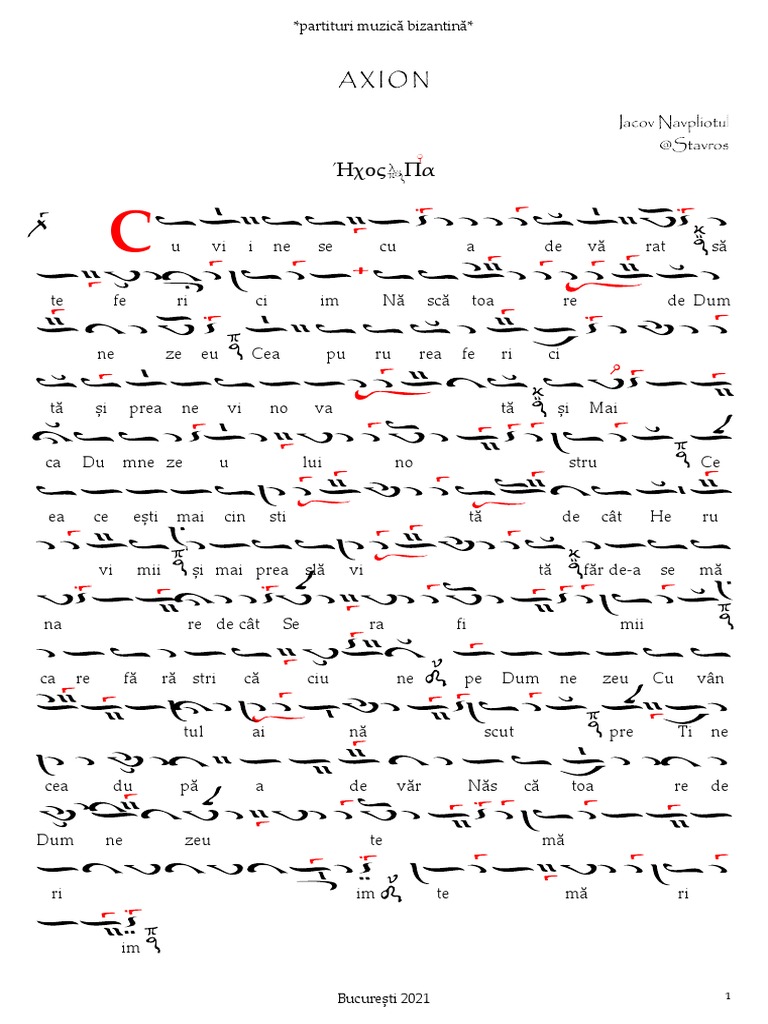 *partituri muzică bizantină*
AXION
Jacov Navpliotul
@Stavros
Ἦχος Πα
C
u vi i ne se cu a de vă rat să
te fe ri ci im Nă scă toa re de Dum
ne ze eu Cea pu ru rea fe ri ci
tă și prea ne vi no va tă și Mai
ca Du mne ze u lui no stru Ce
ea ce ești mai cin sti tă de cât He ru
vi mii și mai prea slă vi tă făr de-a se mă
na re de cât Se ra fi mii
ca re fă ră stri că ciu ne pe Dum ne zeu Cu vân
tul ai nă scut pre Ti ne
cea du pă a de văr Năs că toa re de
Dum ne zeu te mă
ri im te mă ri
im
București 2021
1